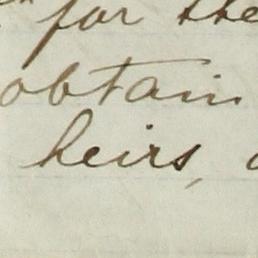 for the
obtain
heirs,